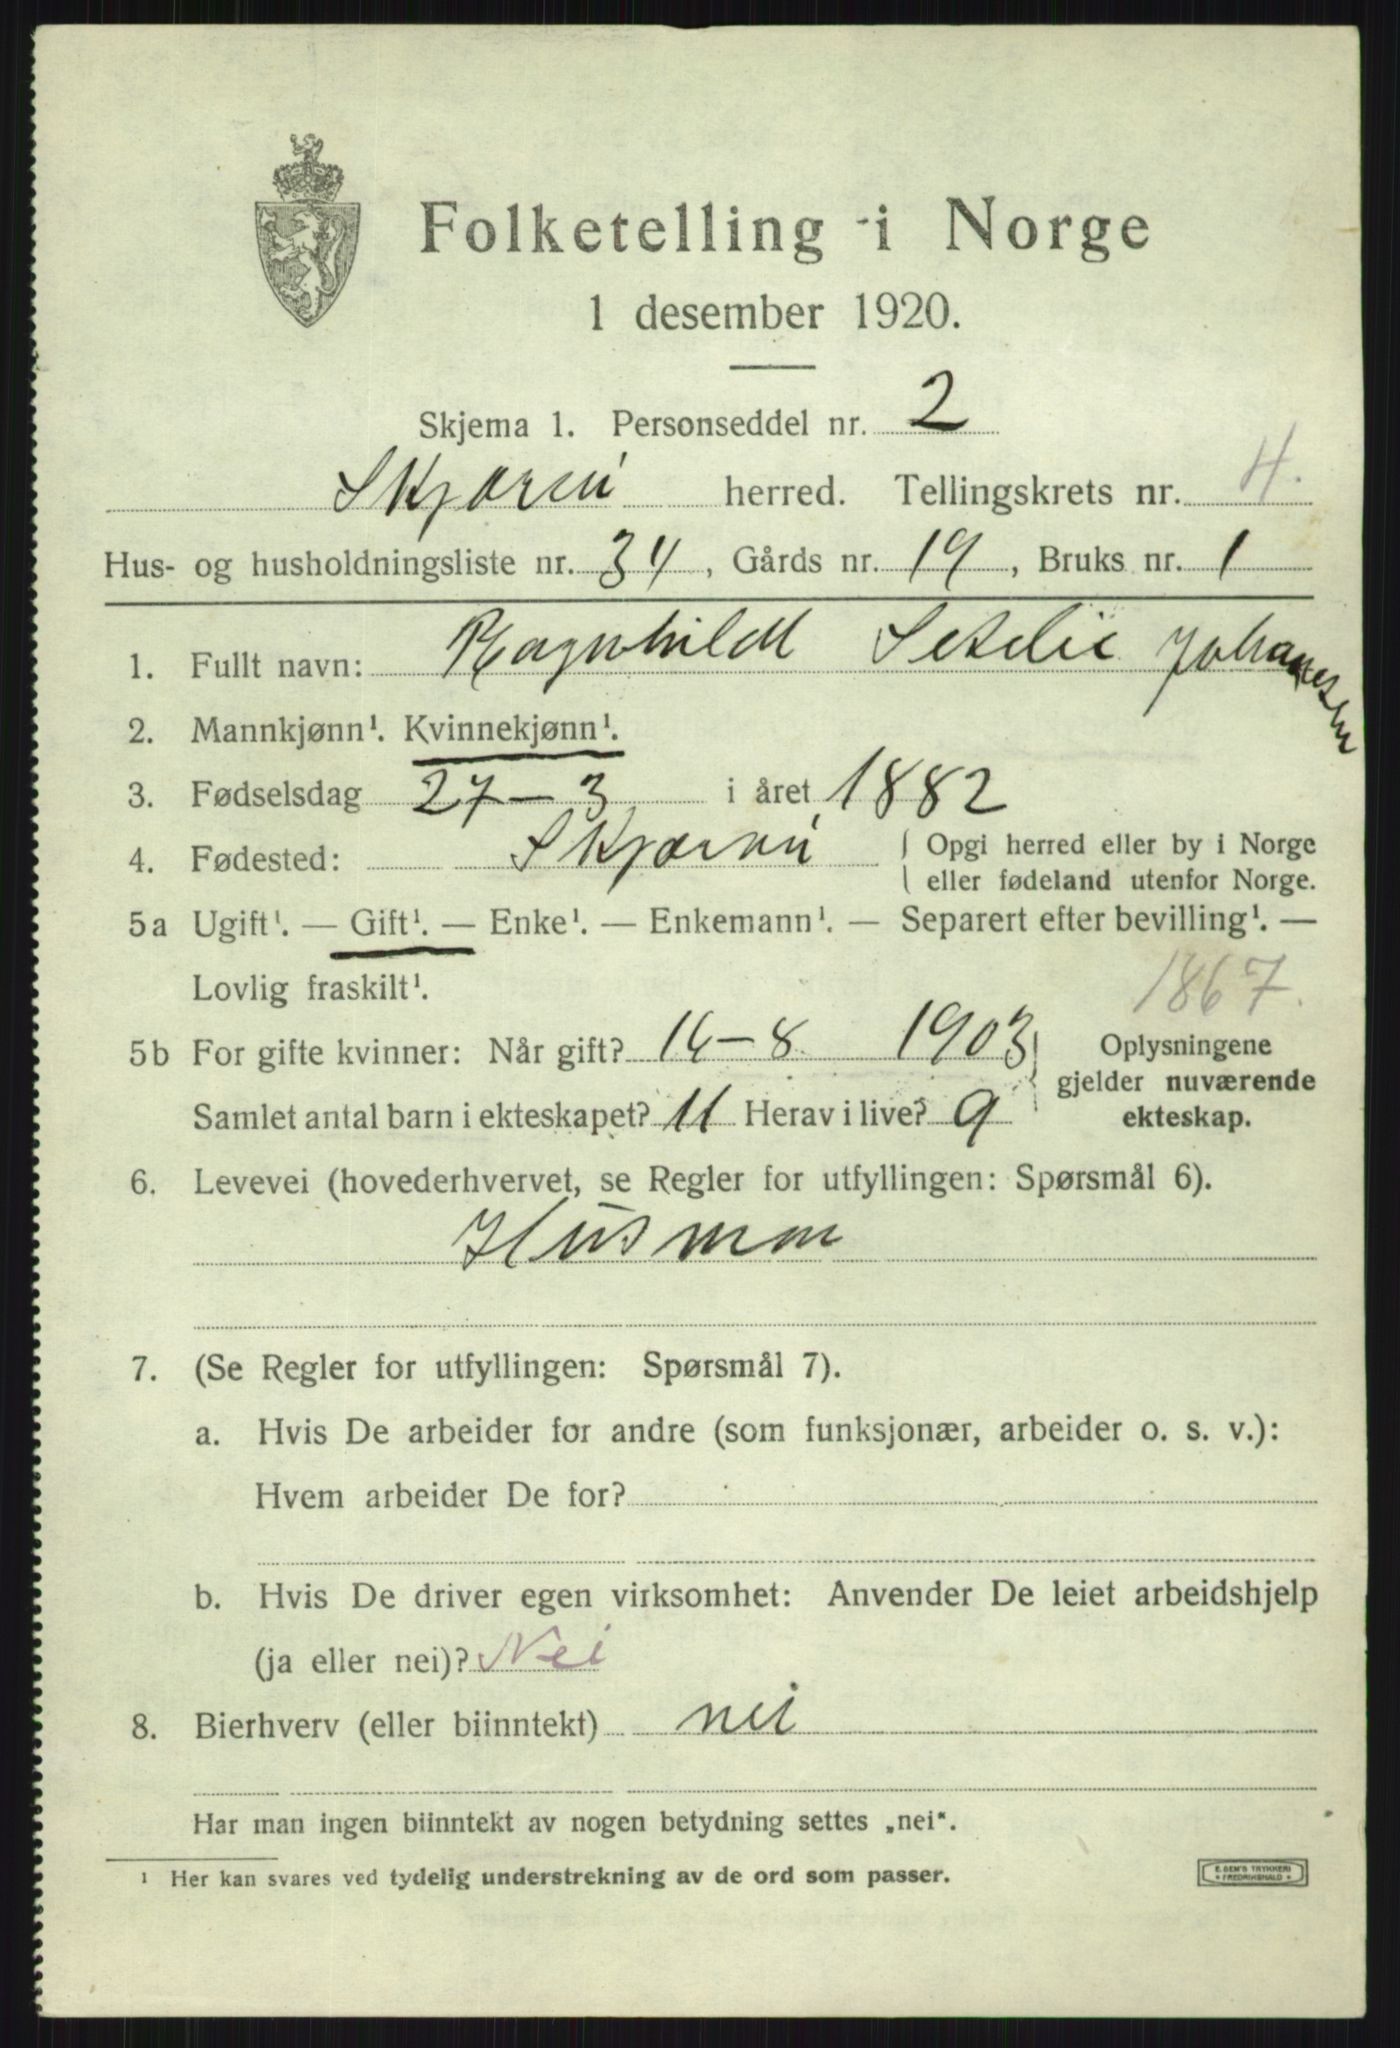 Folketelling i Norge
1 desember 1920.
Skjema 1. Personseddel nr. 2
Skjærøi herred. Tellingskrets nr. 4.
Hus- og husholdningsliste nr. 34, Gårds nr. 19, Bruks nr. 1
1. Fullt navn: Ragnhildl Johannesen
2. Mannkjønn¹. Kvinnekjønn¹.
3. Fødselsdag 27-3 i året 1882
4. Fødested: Skjærøi { Opgi herred eller by i Norge
eller fødeland utenfor Norge.
5a Ugift¹. — Gift¹. — Enke¹. — Enkemann¹. — Separert efter bevilling¹. —
Lovlig fraskilt¹.
1867.
5b For gifte kvinner: Når gift? 16-8 1903 } Oplysningene
gjelder nuværende
Samlet antal barn i ekteskapet? 11 Herav i live? 9
ekteskap.
6. Levevei (hovederhvervet, se Regler for utfyllingen: Spørsmål 6).
Husmor
7. (Se Regler for utfyllingen: Spørsmål 7).
a. Hvis De arbeider for andre (som funksjonær, arbeider o. s. v.):
Hvem arbeider De for?
b. Hvis De driver egen virksomhet: Anvender De leiet arbeidshjelp
(ja eller nei)? Nei
8. Bierhverv (eller biinntekt) nei
Har man ingen biinntekt av nogen betydning settes „nei".
¹ Her kan svares ved tydelig understrekning av de ord som passer.
E. SEM'S TRYKKERI
FREDRIKSHALD